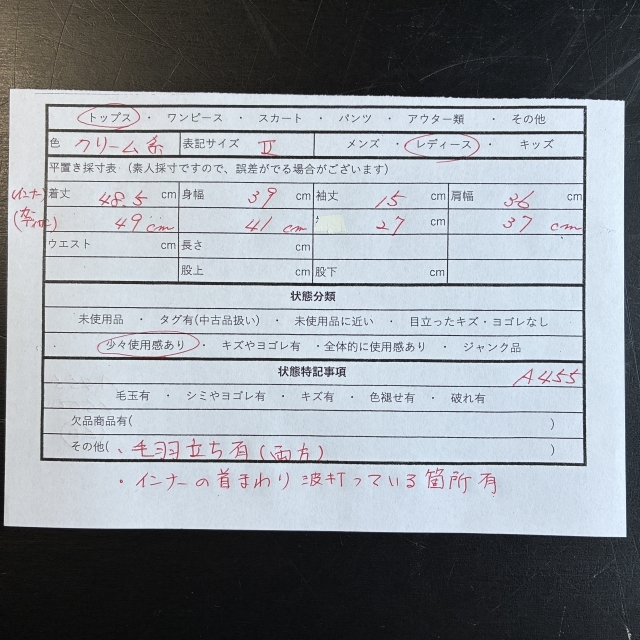 トップス ・ ワンピース ・ スカート ・ パンツ ・ アウター類 ・ その他
色 クリーム系 表記サイズ Ⅱ メンズ ・ レディース ・ キッズ
平置き採寸表 (素人採寸ですので、誤差がでる場合がございます)
(インナー) 着丈 48.5 cm 身幅 39 cm 袖丈 15 cm 肩幅 36 cm
49 cm 41 cm 27 cm 37 cm
ウエスト cm 長さ cm
股上 cm 股下 cm
状態分類
未使用品 ・ タグ有(中古品扱い) ・ 未使用品に近い ・ 目立ったキズ・ヨゴレなし
少々使用感あり ・ キズやヨゴレ有 ・全体的に使用感あり ・ ジャンク品
状態特記事項 A455
毛玉有 ・ シミやヨゴレ有 ・ キズ有 ・ 色褪せ有 ・ 破れ有
欠品商品有( )
その他( ・毛羽立ち有(両方) )
・インナーの首まわり波打っている箇所有